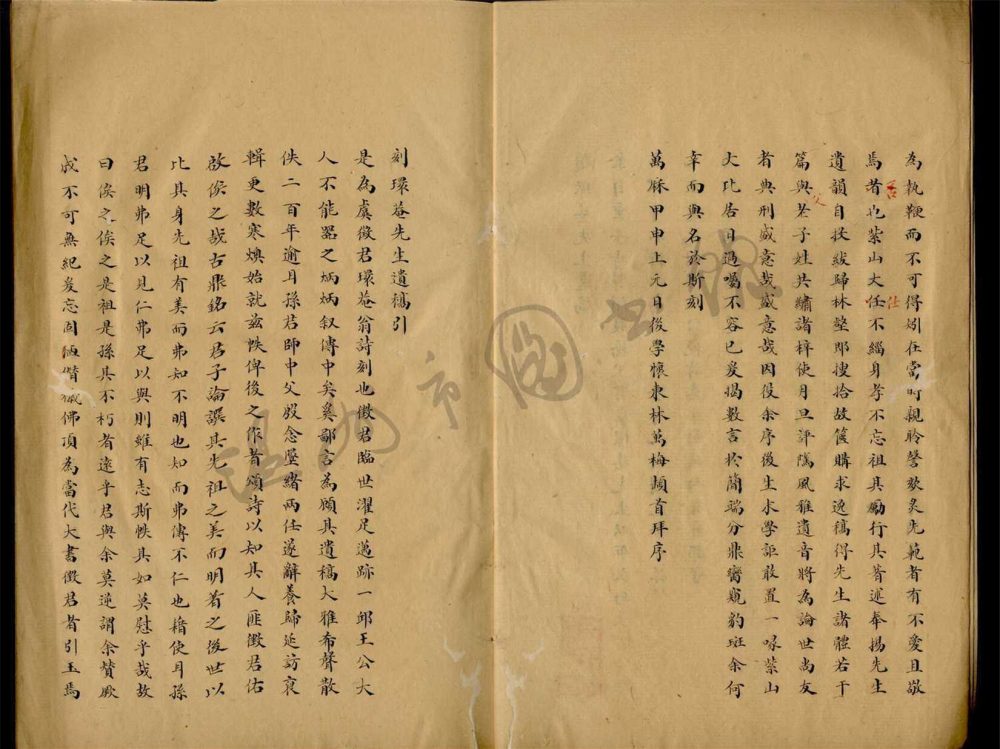 為執鞭而不可得矧在當時親聆謦欬炙光範者有不愛且敬
馬者也紫山大任不緇身孝不忘祖其勵行其著述奉揚先生
若
仕
遺韻自扶紱歸林壑即捜拾故篋購求逸稿得先生諸體若干
篇與若子姓共繡諸梓使月旦評隲風雅遺音將為論世尚友
父
者典刑威意哉威意哉因役余序後生水學詎敢置一喙紫山
大比居日過噶不容已爰揭數言於簡端分鼎臠窺豹斑余何
幸而與名於斯刻
萬厤甲申上元日後學懷東林萬梅頓首拜序
刻環菴先生遺稿引
是為虞徵君環菴翁詩刻也徵君臨世濯足邁跡一邱王公大
人不能器之炳炳叙傳中矣奚鄙言為願其遺稿大雅希聲散
佚二百年逾耳孫君師中父殷念墜緒兩任遂辭養歸延訪裒
輯更數寒燠始就茲帙俾後之作者頌詩以知其人匪徵君佑
啟俟之哉古鼎銘云君子論譔其先祖之美而明著之後世以
比其身先祖有美而弗知不明也知而弗傳不仁也藉使耳孫
君明弗足以見仁弗足以與則雖有志斯帙其如莫慰乎哉故
曰俟之俟之是祖是孫其不朽者遠乎君與余莫逆謂余贊厥
成不可無紀爰忘固陋僭佛頂為當代大書徵君者引玉焉
溫州市圖書館